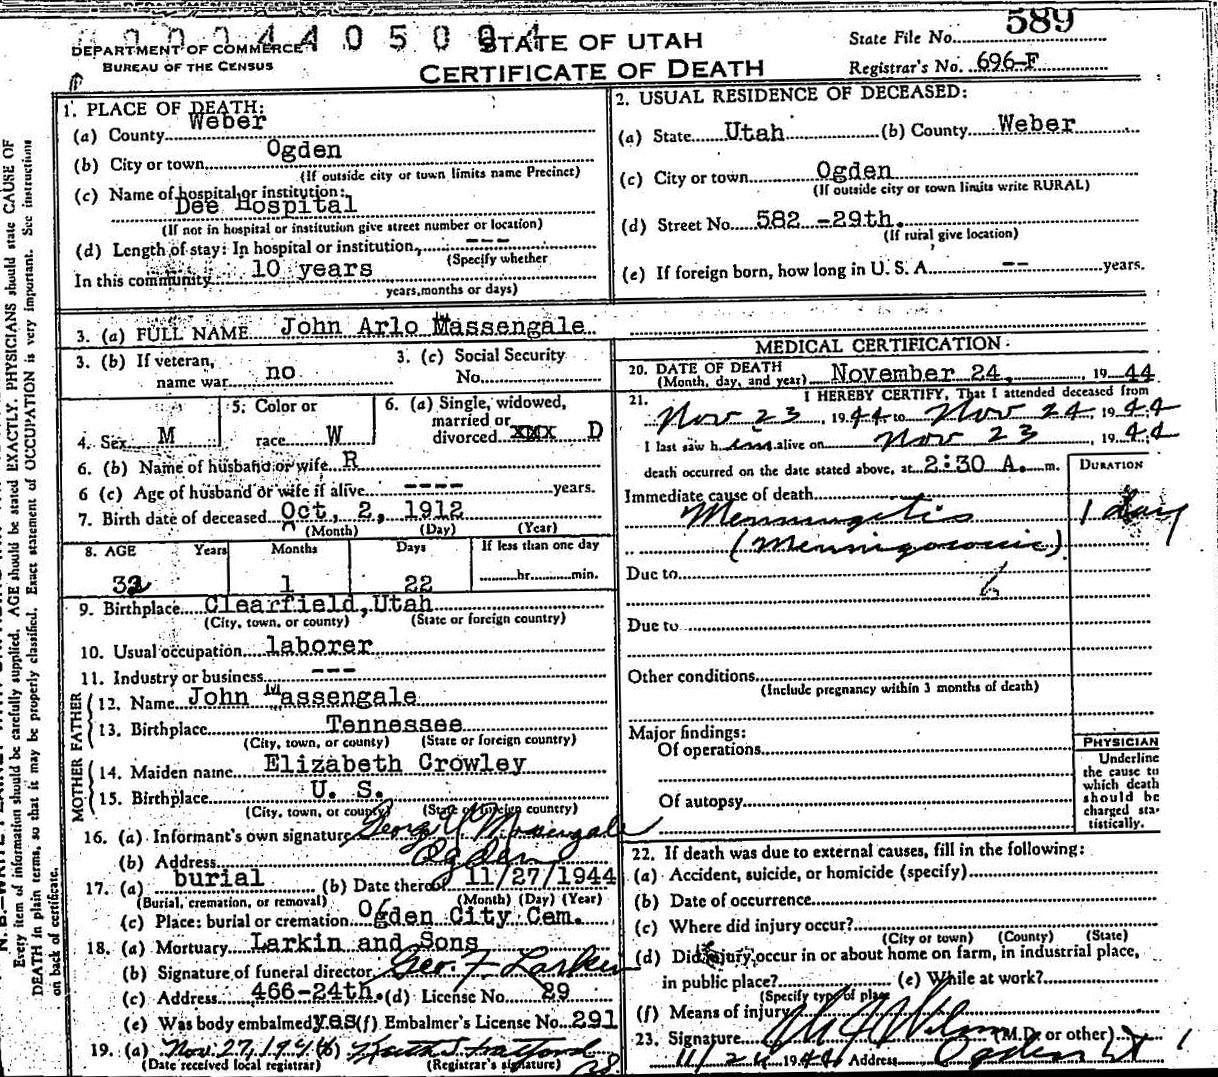 STATE OF UTAH
DEPARTMENT OF COMMERCE
BUREAU OF THE CENSUS
CERTIFICATE OF DEATH
State File No. 589
Registrar's No. 696-F
1. PLACE OF DEATH:
(a) County Weber
(b) City or town Ogden
(If outside city or town limits name Precinct)
(c) Name of hospital or institution:
Dee Hospital
(If not in hospital or institution give street number or location)
(d) Length of stay: In hospital or institution ---
(Specify whether
In this community 10 years
years, months or days)
2. USUAL RESIDENCE OF DECEASED:
(a) State Utah (b) County Weber
(c) City or town Ogden
(If outside city or town limits write RURAL)
(d) Street No. 582 -29th.
(If rural give location)
(e) If foreign born, how long in U. S. A. -- years.
3. (a) FULL NAME John Arlo Massengale
3. (b) If veteran, name war no
3. (c) Social Security No.
4. Sex M
5. Color or race W
6. (a) Single, widowed, married or divorced xxx D
6. (b) Name of husband or wife R
6 (c) Age of husband or wife if alive ---- years.
7. Birth date of deceased Oct, 2, 1912
(Month) (Day) (Year)
8. AGE Years Months Days If less than one day
32 1 22 hr. min.
9. Birthplace Clearfield, Utah
(City, town, or county) (State or foreign country)
10. Usual occupation laborer
11. Industry or business ---
FATHER
12. Name John Massengale
13. Birthplace Tennessee
(City, town, or county) (State or foreign country)
MOTHER
14. Maiden name Elizabeth Crowley
15. Birthplace U. S.
(City, town, or county) (State or foreign country)
16. (a) Informant's own signature Massengale
(b) Address Ogden
17. (a) burial (b) Date thereof 11/27/1944
(Burial, cremation, or removal) (Month) (Day) (Year)
(c) Place: burial or cremation Ogden City Cem.
18. (a) Mortuary Larkin and Sons
(b) Signature of funeral director Geo. F. Larkin
(c) Address 466-24th. (d) License No. 29
(e) Was body embalmed yes (f) Embalmer's License No. 291
19. (a) Nov. 27, 1944 (b)
(Date received local registrar) (Registrar's signature)
MEDICAL CERTIFICATION
20. DATE OF DEATH
(Month, day, and year) November 24, 1944
21. I HEREBY CERTIFY, That I attended deceased from
Nov 23, 1944 to Nov 24, 1944
I last saw him alive on Nov 23 1944
death occurred on the date stated above, at 2:30 A. m.
DURATION
Immediate cause of death
Menningetis 1 day
Due to
Due to
Other conditions
(Include pregnancy within 3 months of death)
Major findings:
Of operations
Of autopsy
PHYSICIAN
Underline
the cause to
which death
should be
charged sta-
tistically.
22. If death was due to external causes, fill in the following:
(a) Accident, suicide, or homicide (specify)
(b) Date of occurrence
(c) Where did injury occur?
(City or town) (County) (State)
(d) Did injury occur in or about home on farm, in industrial place,
in public place? (e) While at work?
(Specify type of place
(f) Means of injury
23. Signature (M.D. or other)
Address Ogden Ut
Every item of information should be carefully supplied. AGE should be stated EXACTLY. PHYSICIANS should state CAUSE OF
DEATH in plain terms, so that it may be properly classified. Exact statement of OCCUPATION is very important. See instructions
on back of certificate.